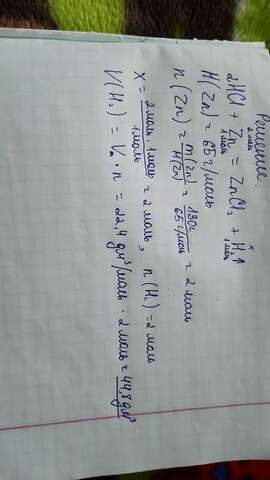 Решение.
2 моль x
2HCl + Zn = ZnCl₂ + H₂↑
1 моль 1 моль
M(Zn) = 65 г/моль
n(Zn) = m(Zn)/M(Zn) = 130г/65 г/моль = 2 моль
X = 2 моль · 1 моль/1 моль = 2 моль, n(H₂) = 2 моль
V(H₂) = Vₘ · n = 22,4 дм³/моль · 2 моль = 44,8 дм³